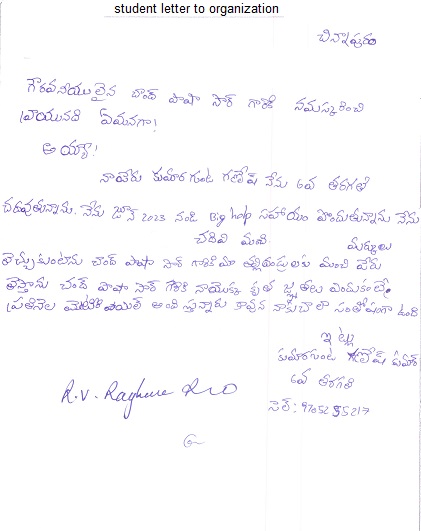 student letter to organization
చిన్నాపురం
గౌరవనీయులైన చాంద్ పాషా సార్ గారికి నమస్కరించి
వ్రాయునది ఏమనగా!
అయ్యా!
నాపేరు కుమారగుంట గణేష్ నేను 6వ తరగతి
చదువుతున్నాను. నేను జూన్ 2023 నుండి Big help సహాయం పొందుతున్నాను నేను
చదివి మంచి మార్కులు
తెచ్చుకుంటాను చాంద్ పాషా సార్ గారికి మా తల్లిదండ్రులకు మంచి పేరు
తెస్తాను చాంద్ పాషా సార్ గారికి నాయొక్క కృతజ్ఞతలు ఎందుకంటే
ప్రతినెల మెటీరియల్ అందిస్తున్నారు కావున నాకు చాలా సంతోషంగా ఉంది
ఇట్లు
కుమారగుంట గణేష్ కుమార్
6వ తరగతి
సెల్:
R.V. Raghava Rao